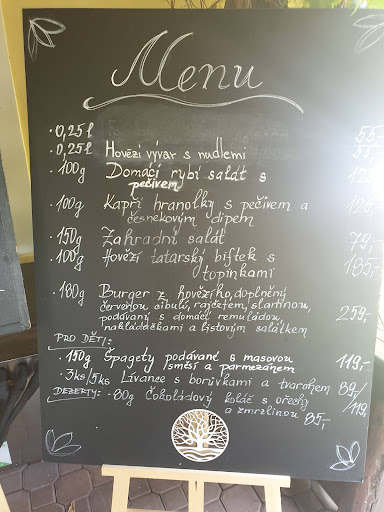 Menu
·0,25l 55,-
·0,25l Hovězí vývar s nudlemi 55,-
·100g Domácí rybí salát s pečivem
·100g Kapří hranolky s pečivem a
česnekovým dipem
150g Zahradní salát 79,-
·100g Hovězí tatarský biftek s 185,-
topinkami
·180g Burger z hovězího, doplněný
červenou cibulí, rajčetem, slaninou,
podávaný s domácí remuládou, 259,-
nakládačkami a listovým salátkem
PRO DĚTI:
·150g Špagety podávané s masovou 119,-
směsí a parmezánem
·3ks/5ks Lívance s borůvkami a tvarohem 89,-
/119,-
DEZERTY: ·80g Čokoládový koláč s ořechy
a zmrzlinou 85,-